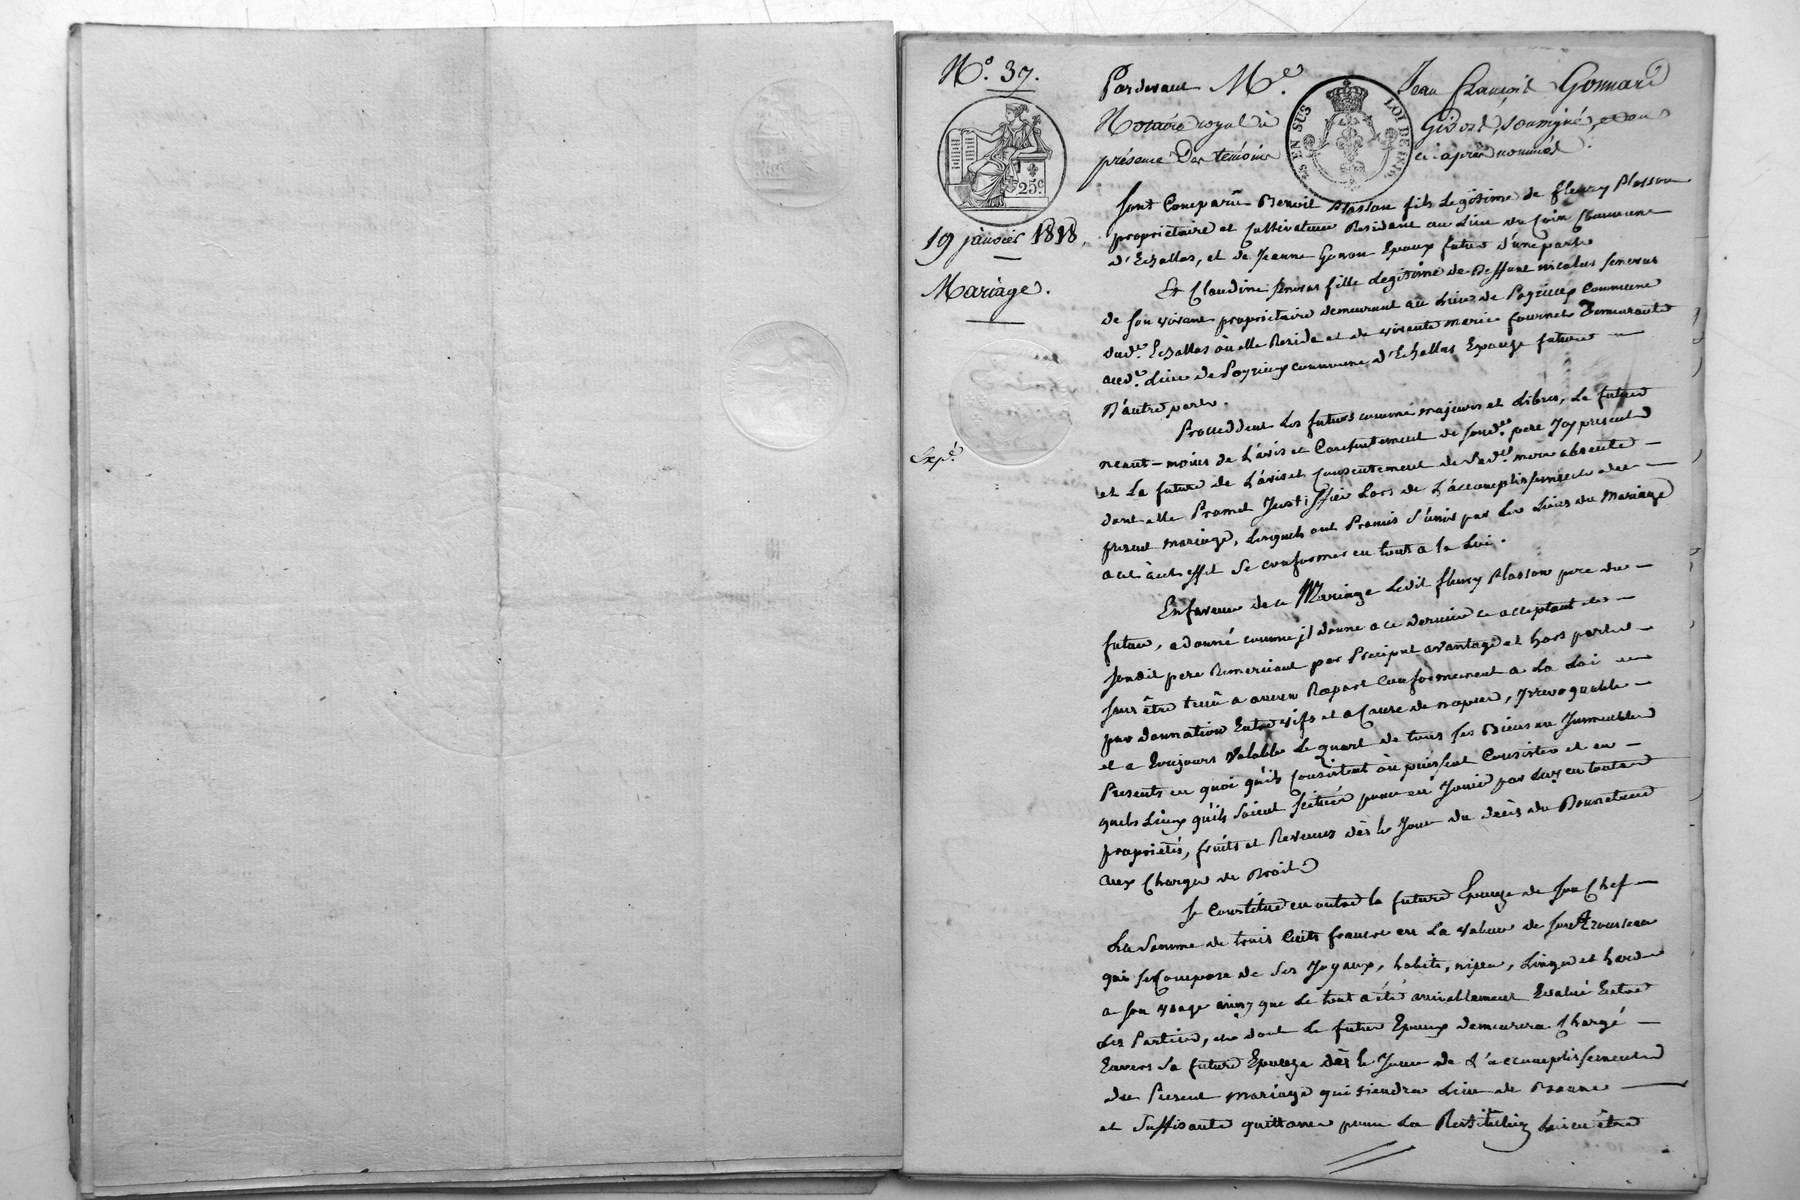 N.° 37.
25.c
19 janvier 1818.
Mariage.
Exp.é
25 EN SUS LOI DE 1816
Pardevant M.e Jean françois Gonnard
Notaire royal à Givors, soussigné, et en
présence Des témoins ci après nommés.
Sont Comparu Benoit Plasson fils Legitime de fleury Plasson
proprietaire et Cultivateur Residant au Lieu du Coin Commune
d'Echallas, et de Jeanne Epoux futur d'une part
Et Claudine fille Legitime de Deffunt nicolas
de Son vivant proprietaire demeurant au Lieu de Commune
dud.t Echallas où elle Reside et de vivante marie fournet Demeurante
aud.t Lieu de commune d'Echallas Epouze future
D'autre part.
Proceddent Les futurs comme majeurs et Libres, Le futur
neant-moins de L'avis et Consentement de Sond.t pere Icy present
et La future de L'avis et Consentement de Sad.e mere absente
dont elle Promet Justiffier Lors de L'accomplissement du
present mariage, Lesquels ont Promis S'unir par Les Liens du Mariage
et à cet effet Se conformer en tout a la Loi.
En faveur de ce Mariage Ledit fleury Plasson pere du
futur, a donné comme il donne a ce dernier ce acceptant et
Sondit pere Remerciant par Preciput avantage et hors part
Sans être tenu a aucun Raport Conformement a La Loi
par donnation Entre vifs et a Cause de noces, Irrevoquable
et a toujours valable Le quart de tous Ses Biens Immeubles
Presents en quoi qu'ils Consistent ou puissent Consister et en
quels Lieux qu'ils Soient pour en Jouir par Luy en toute
proprietés, fruits et Revenus dès le Jour du décès du Donnateur
aux Charges de Droit
Se Constitue en outre la future Epouze de Son Chef
La Somme de trois Cents francs en La valeur de Son Trousseau
qui Se Compose de Ses Joyaux, habits, nipes, Linges et hardes
a Son usage ainsy que Le tout a été amiablement Evalué Entre
Les Parties, et dont Le futur Epoux demeurera Chargé
Envers La future Epouze dès le Jour de L'accomplissement
du Present mariage qui tiendra Lieu de Bonne
et Suffisante quittance pour La Restitution être